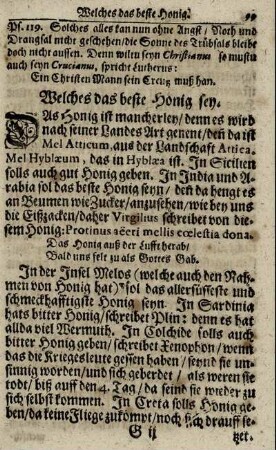 Welches das beste Honig. 99
Ps. 119. Solches alles kan nun ohne Angst / Noth und
Drangsal nicht geschehen / die Sonne des Trübsals bleibt
doch nicht aussen. Denn wiltu seyn Christianus so mustu
auch seyn Crucianus, spricht Lutherus:
Ein Christen Mann sein Creutz muß han.
Welches das beste Honig sey.
DAs Honig ist mancherley / denn es wird
nach seiner Landes Art genent / den da ist
Mel Atticum, aus der Landschaft Attica.
Mel Hyblæum, das in Hyblæa ist. In Sicilien
solls auch gut Honig geben. In India und A-
rabia sol das beste Honig seyn / den da hengt es
an Beumen wie Zucker / anzusehen / wie bey uns
die Eißzacken / daher Virgilius schreibet von die-
sem Honig: Protinus aëeri mellis cœlestia dona.
Das Honig auß der Lufft herab /
Bald uns felt zu als Gottes Gab.
In der Insel Melos (welche auch den Nah-
men von Honig hat) sol das allersüsseste und
schmeckhafftigste Honig seyn. In Sardinia
hats bitter Honig / schreibet Plin: denn es hat
allda viel Wermuth. In Colchide solls auch
bitter Honig geben / schreibet Xenophon / wenn
das die Kriegesleute gessen haben / seynd sie un-
sinnig worden / und sich geberdet / als weren sie
todt / biß auff den 4. Tag / da seind sie wieder zu
sich selbst kommen. In Creta solls Honig ge-
ben / da keine Fliege zukompt / noch sich drauff se-
G ij tzet.